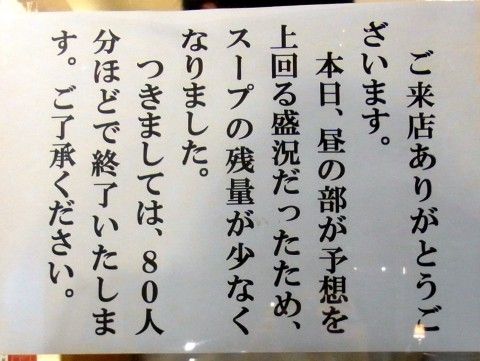 ご来店ありがとうご
ざいます。
本日、昼の部が予想を
上回る盛況だったため、
スープの残量が少なく
なりました。
つきましては、80人
分ほどで終了いたしま
す。ご了承ください。